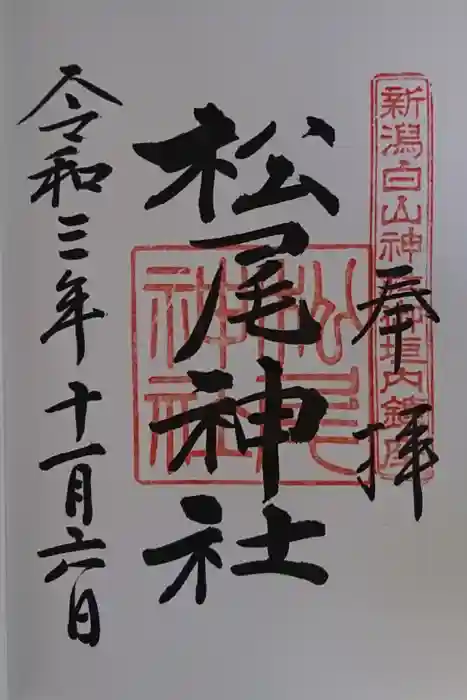 奉拝
新潟白山神社御垣内鎮座
松尾神社
松尾神社
令和三年十一月六日